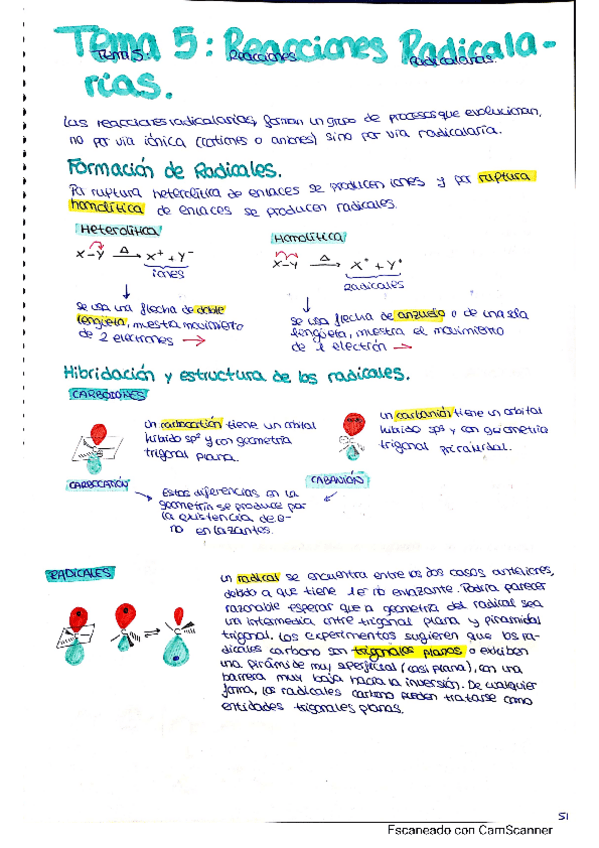 Tema 5: Reacciones Radicala-
rias.
Tema 5: Reacciones Radicalarias.
Las reacciones radicalarias, forman un grupo de procesos que evolucionan,
no por via iónica (cationes o aniones) sino por via radicalaria.
Formación de Radicales.
Por ruptura heterolítica de enlaces se producen iones y por ruptura
homolítica de enlaces se producen radicales.
Heterolítica
Homolítica
X–Y Δ→ X⁺ + Y⁻
iones
X–Y Δ→ X• + Y•
Radicales
se usa una flecha de doble
lengüeta, muestra movimiento
de 2 electrones →
se usa flecha de anzuelo o de una sola
lengüeta, muestra el movimiento
de 1 electrón →
Hibridación y estructura de los radicales.
CARBOIONES
un carbocatión tiene un orbital
híbrido sp² y con geometría
trigonal plana.
un carbanión tiene un orbital
híbrido sp³ y con geometría
trigonal piramidal.
CARBOCATIÓN
CABANIÓN
Estas diferencias en la
geometría se produce por
la existencia de e-
no enlazantes.
RADICALES
un radical se encuentra entre los dos casos anteriores,
debido a que tiene 1e⁻ no enlazante. Podría parecer
razonable esperar que la geometría del radical sea
una intermedia entre trigonal plana y piramidal
trigonal. Los experimentos sugieren que los ra-
dicales carbono son trigonales planos o exhiben
una pirámide muy superficial (casi plana), con una
barrera muy baja hacia la inversión. De cualquier
forma, los radicales carbono pueden tratarse como
entidades trigonales planas.
51
Escaneado con CamScanner